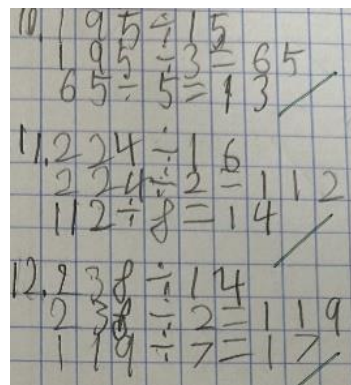 10. 195÷15
195÷3=65
65÷5=13
11. 224÷16
224÷2=112
112÷8=14
12. 238÷14
238÷2=119
119÷7=17